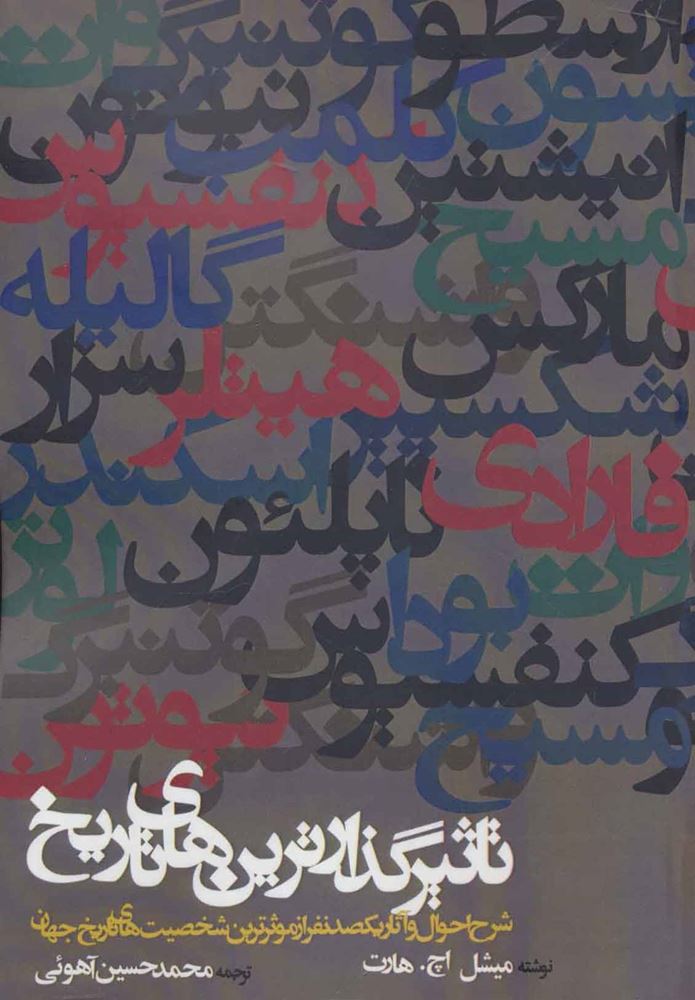 ارسطو گوتنبرگ وات
ادیسون کلمب نیوتون
انیشتین کنفسیوس
مسیح
واشنگتن گالیله
مارکس سزار
شکسپیر هیتلر
اسکندر
فارادی ناپلئون
وات بودا لوتر
کنفسیوس گوتنبرگ
مسیح واشنگتن نیوتون
تاثیرگذارترین‌های تاریخ
شرح احوال و آثار یکصد نفر از موثرترین شخصیت‌های تاریخ جهان
نوشته میشل اچ. هارت
ترجمه محمدحسین آهوئی